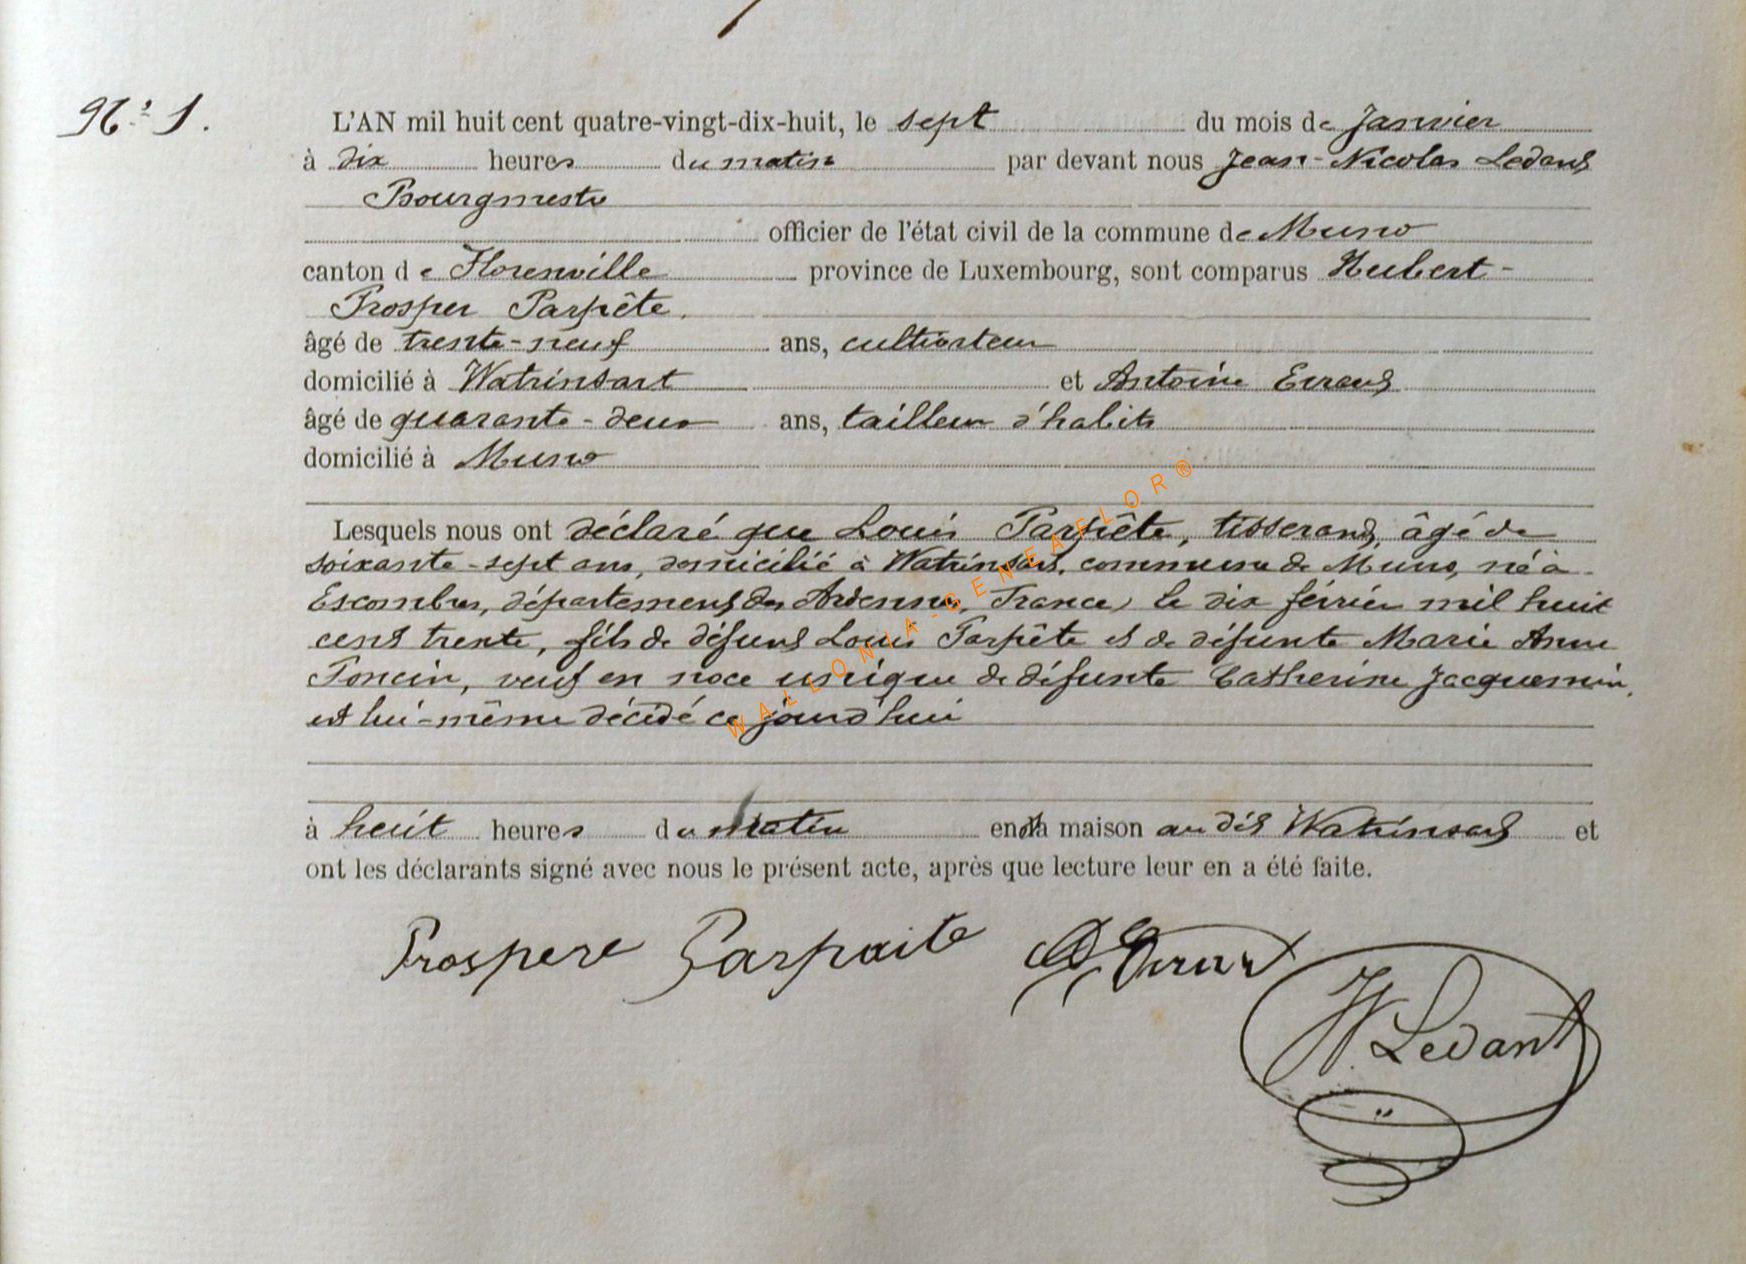 N° 1.
L'AN mil huit cent quatre-vingt-dix-huit, le sept du mois de Janvier
à dix heures du matin par devant nous Jean-Nicolas Ledant
Bourgmestre
officier de l'état civil de la commune de Muno
canton de Florenville province de Luxembourg, sont comparus Hubert-
Prosper Parpête.
âgé de trente-neuf ans, cultivateur
domicilié à Watrinsart et Antoine
âgé de quarante-deux ans, tailleur d'habits
domicilié à Muno
Lesquels nous ont déclaré que Louis Parpête, tisserand, âgé de
soixante-sept ans, domicilié à Watrinsart, commune de Muno, né à
Escombres, département des Ardennes, France, le dix février mil huit
cent trente, fils de défunt Louis Parpête et de défunte Marie Anne
Poncin, veuf en noce unique de défunte Catherine Jacquemin,
est lui-même décédé ce jourd'hui
à huit heures du matin en sa maison au dit Watrinsart et
ont les déclarants signé avec nous le présent acte, après que lecture leur en a été faite.
Prospere Parpaite
Ledant
WALLONIA-GENEAFLOR®